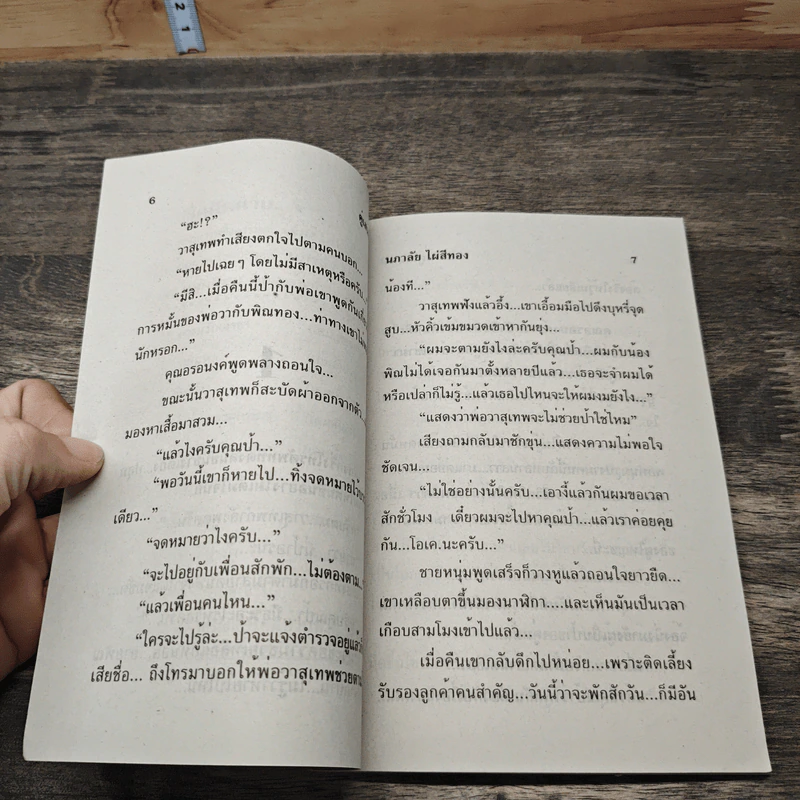 2
1
6
“ฮะ!?”
วาสุเทพทำเสียงตกใจไปตามคนบอก...
“หายไปเฉยๆ โดยไม่มีสาเหตุหรือครับ...
“มีสิ...เมื่อคืนนี้ป้ากับพ่อเขาพูดกัน
การหมั้นของพ่อวากับพิณทอง...ท่าทางเขา
นักหรอก...”
คุณอรอนงค์พูดพลางถอนใจ...
ขณะนั้นวาสุเทพก็สะบัดผ้าออกจากตัว
มองหาเสื้อมาสวม...
“แล้วไงครับคุณป้า...”
“พอวันนี้เขาก็หายไป...ทิ้งจดหมายไว้
เดียว...”
“จดหมายว่าไงครับ...”
“จะไปอยู่กับเพื่อนสักพัก...ไม่ต้องตาม...
“แล้วเพื่อนคนไหน...”
“ใครจะไปรู้ล่ะ...ป้าจะแจ้งตำรวจอยู่แล้ว
เสียชื่อ... ถึงโทรมาบอกให้พ่อวาสุเทพช่วยตาม
นภาลัย ไผ่สีทอง
7
น้องที...”
วาสุเทพฟังแล้วอึ้ง...เขาเอื้อมมือไปดึงบุหรี่จุด
สูบ...หัวคิ้วเข้มขมวดเข้าหากันยุ่ง...
“ผมจะตามยังไงล่ะครับคุณป้า...ผมกับน้อง
พิณไม่ได้เจอกันมาตั้งหลายปีแล้ว...เธอจะจำผมได้
หรือเปล่าก็ไม่รู้...แล้วเธอไปไหนจะให้ผมงมยังไง...”
“แสดงว่าพ่อวาสุเทพจะไม่ช่วยป้าใช่ไหม”
เสียงถามกลับมาชักขุ่น...แสดงความไม่พอใจ
ชัดเจน...
“ไม่ใช่อย่างนั้นครับ...เอางี้แล้วกันผมขอเวลา
สักชั่วโมง เดี๋ยวผมจะไปหาคุณป้า...แล้วเราค่อยคุย
กัน...โอเค.นะครับ...”
ชายหนุ่มพูดเสร็จก็วางหูแล้วถอนใจยาวยืด...
เขาเหลือบตาขึ้นมองนาฬิกา....และเห็นมันเป็นเวลา
เกือบสามโมงเข้าไปแล้ว...
เมื่อคืนเขากลับดึกไปหน่อย...เพราะติดเลี้ยง
รับรองลูกค้าคนสำคัญ...วันนี้ว่าจะพักสักวัน...ก็มีอัน